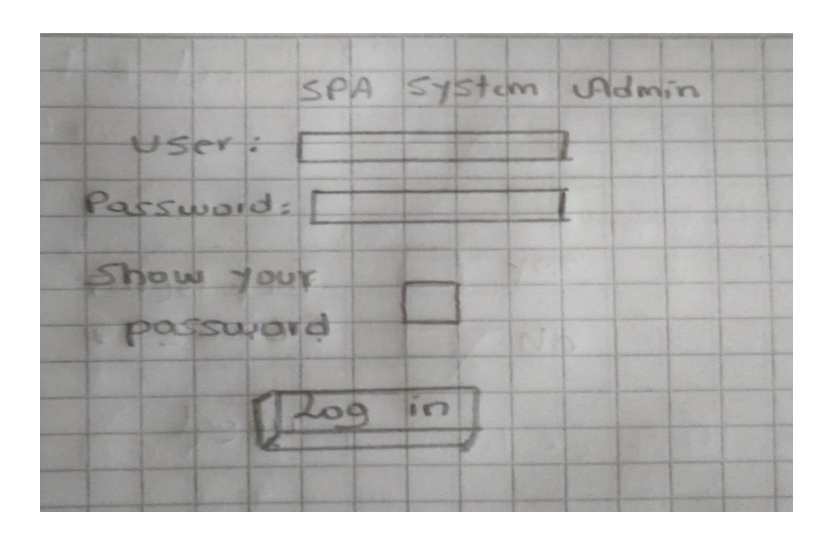 SPA System Admin
User:
Password:
Show your
password
Log in